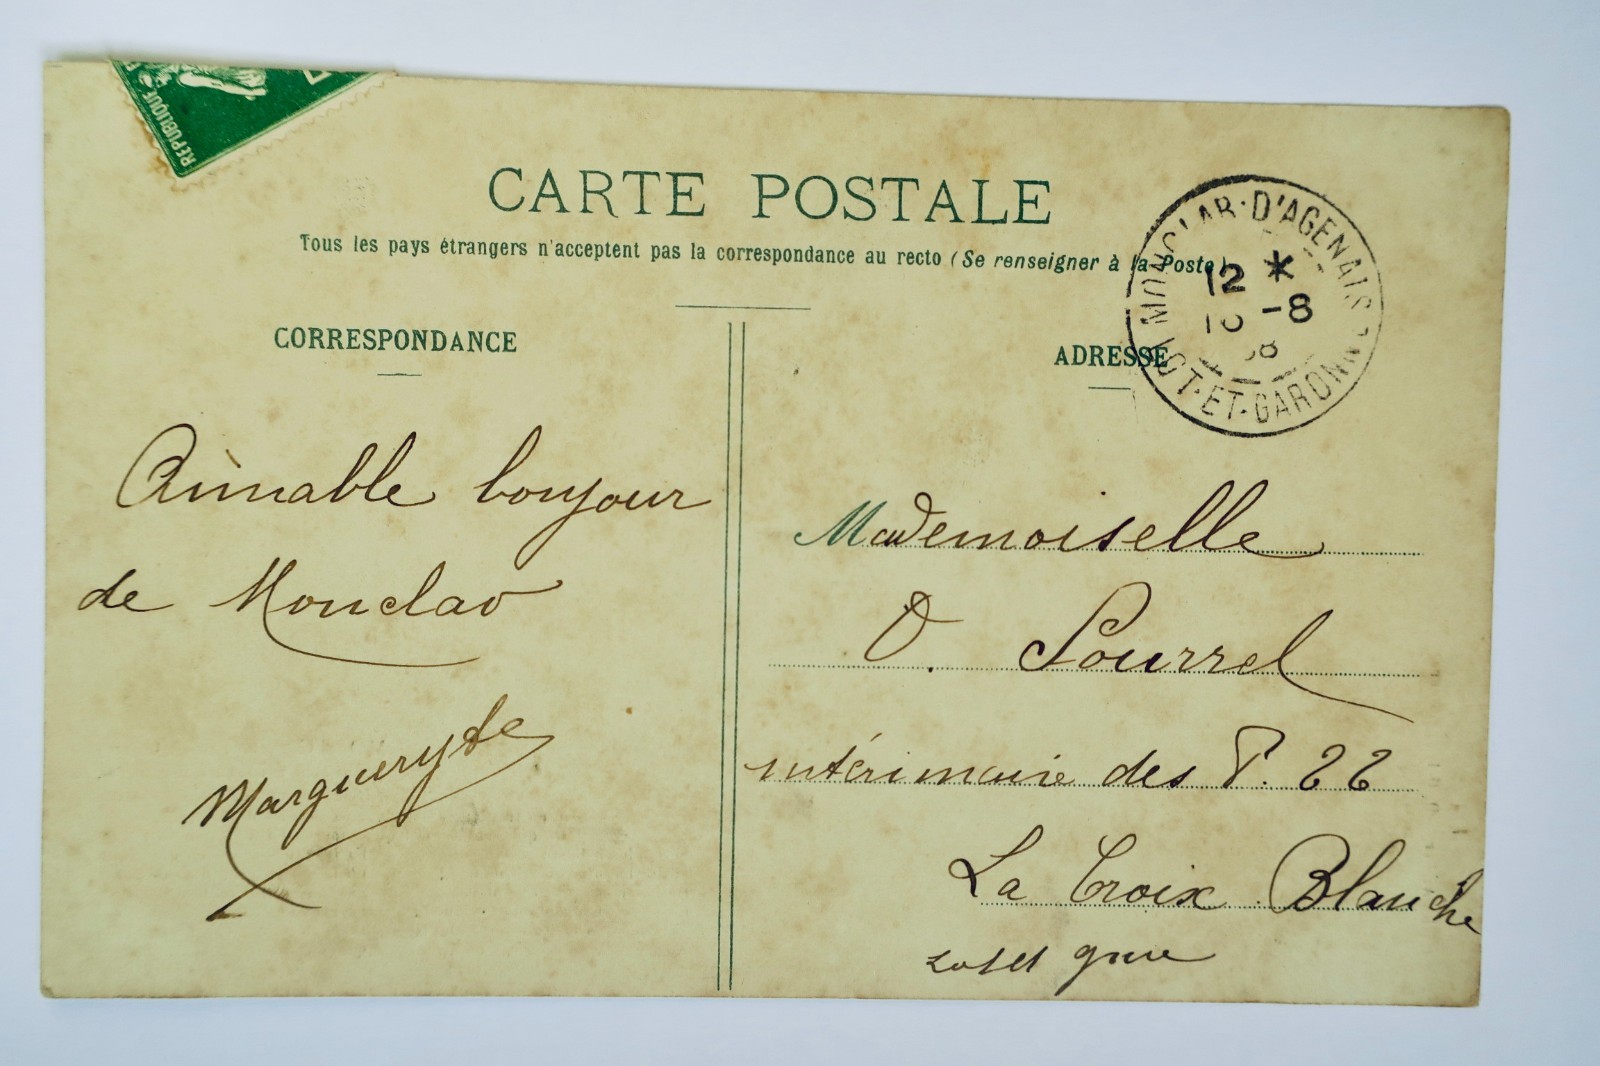 REPUBLIQUE
CARTE POSTALE
Tous les pays étrangers n'acceptent pas la correspondance au recto (Se renseigner à la Poste)
MONCLAR-D'AGENAIS
12 *
-8
LOT-ET-GARONNE
CORRESPONDANCE
ADRESSE
Aimable bonjour
de Monclar
Margueryte
Mademoiselle
O. Pourrel
intérimaire des P.
La Croix Blanche
Lot et gne